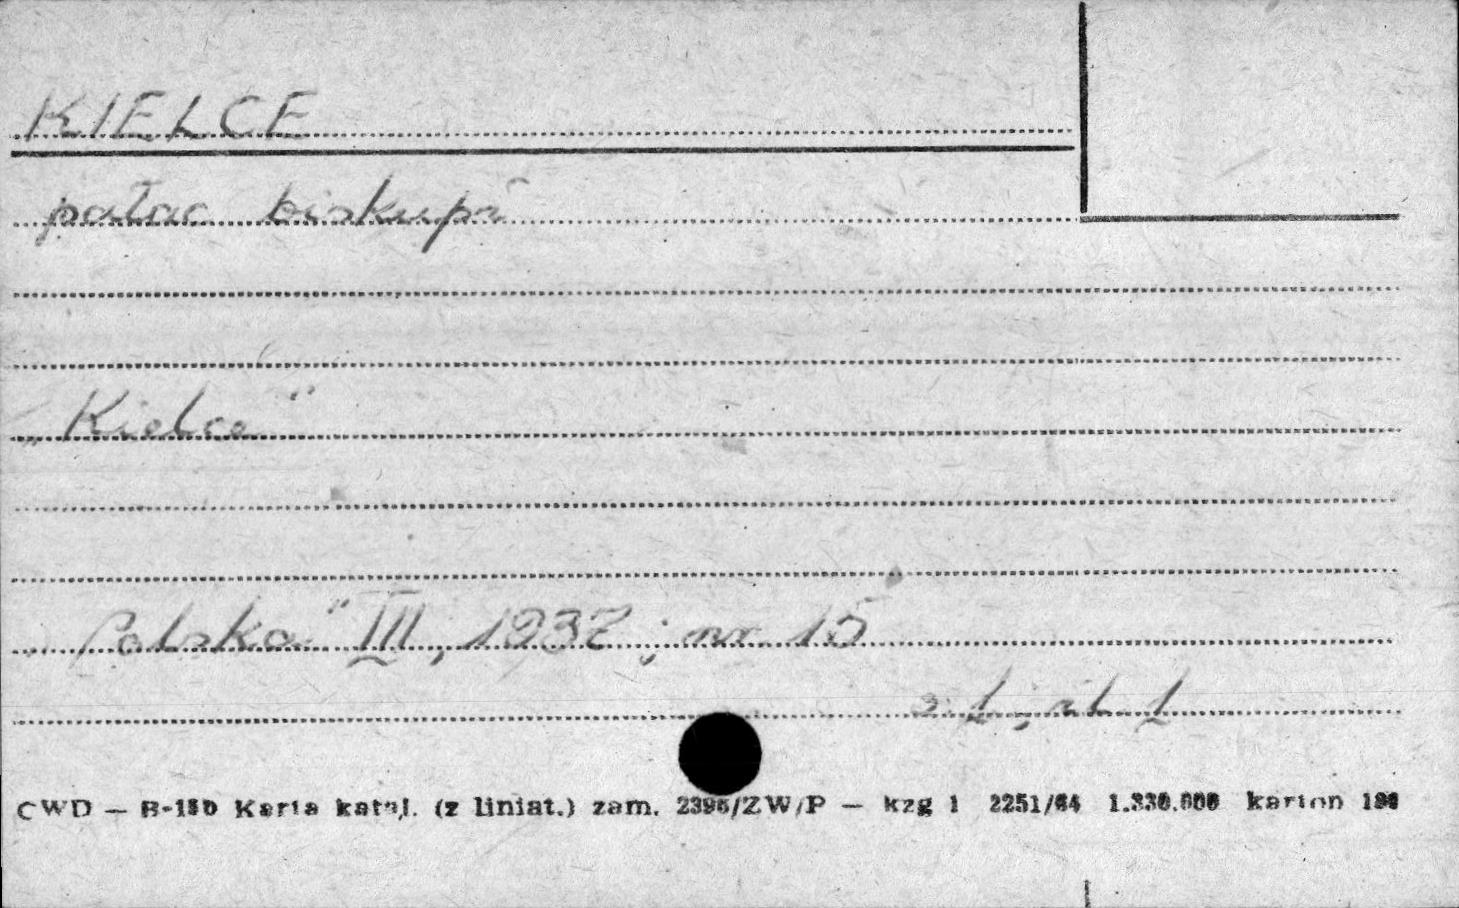 KIELCE
pałac biskupi
„Kielce"
„Polska" III, 1937; nr 15
s. 1; il. 1
CWD — B-150 Karta katal. (z liniat.) zam. 2396/ZW/P — kzg 1 2251/64 1.330.000 karton